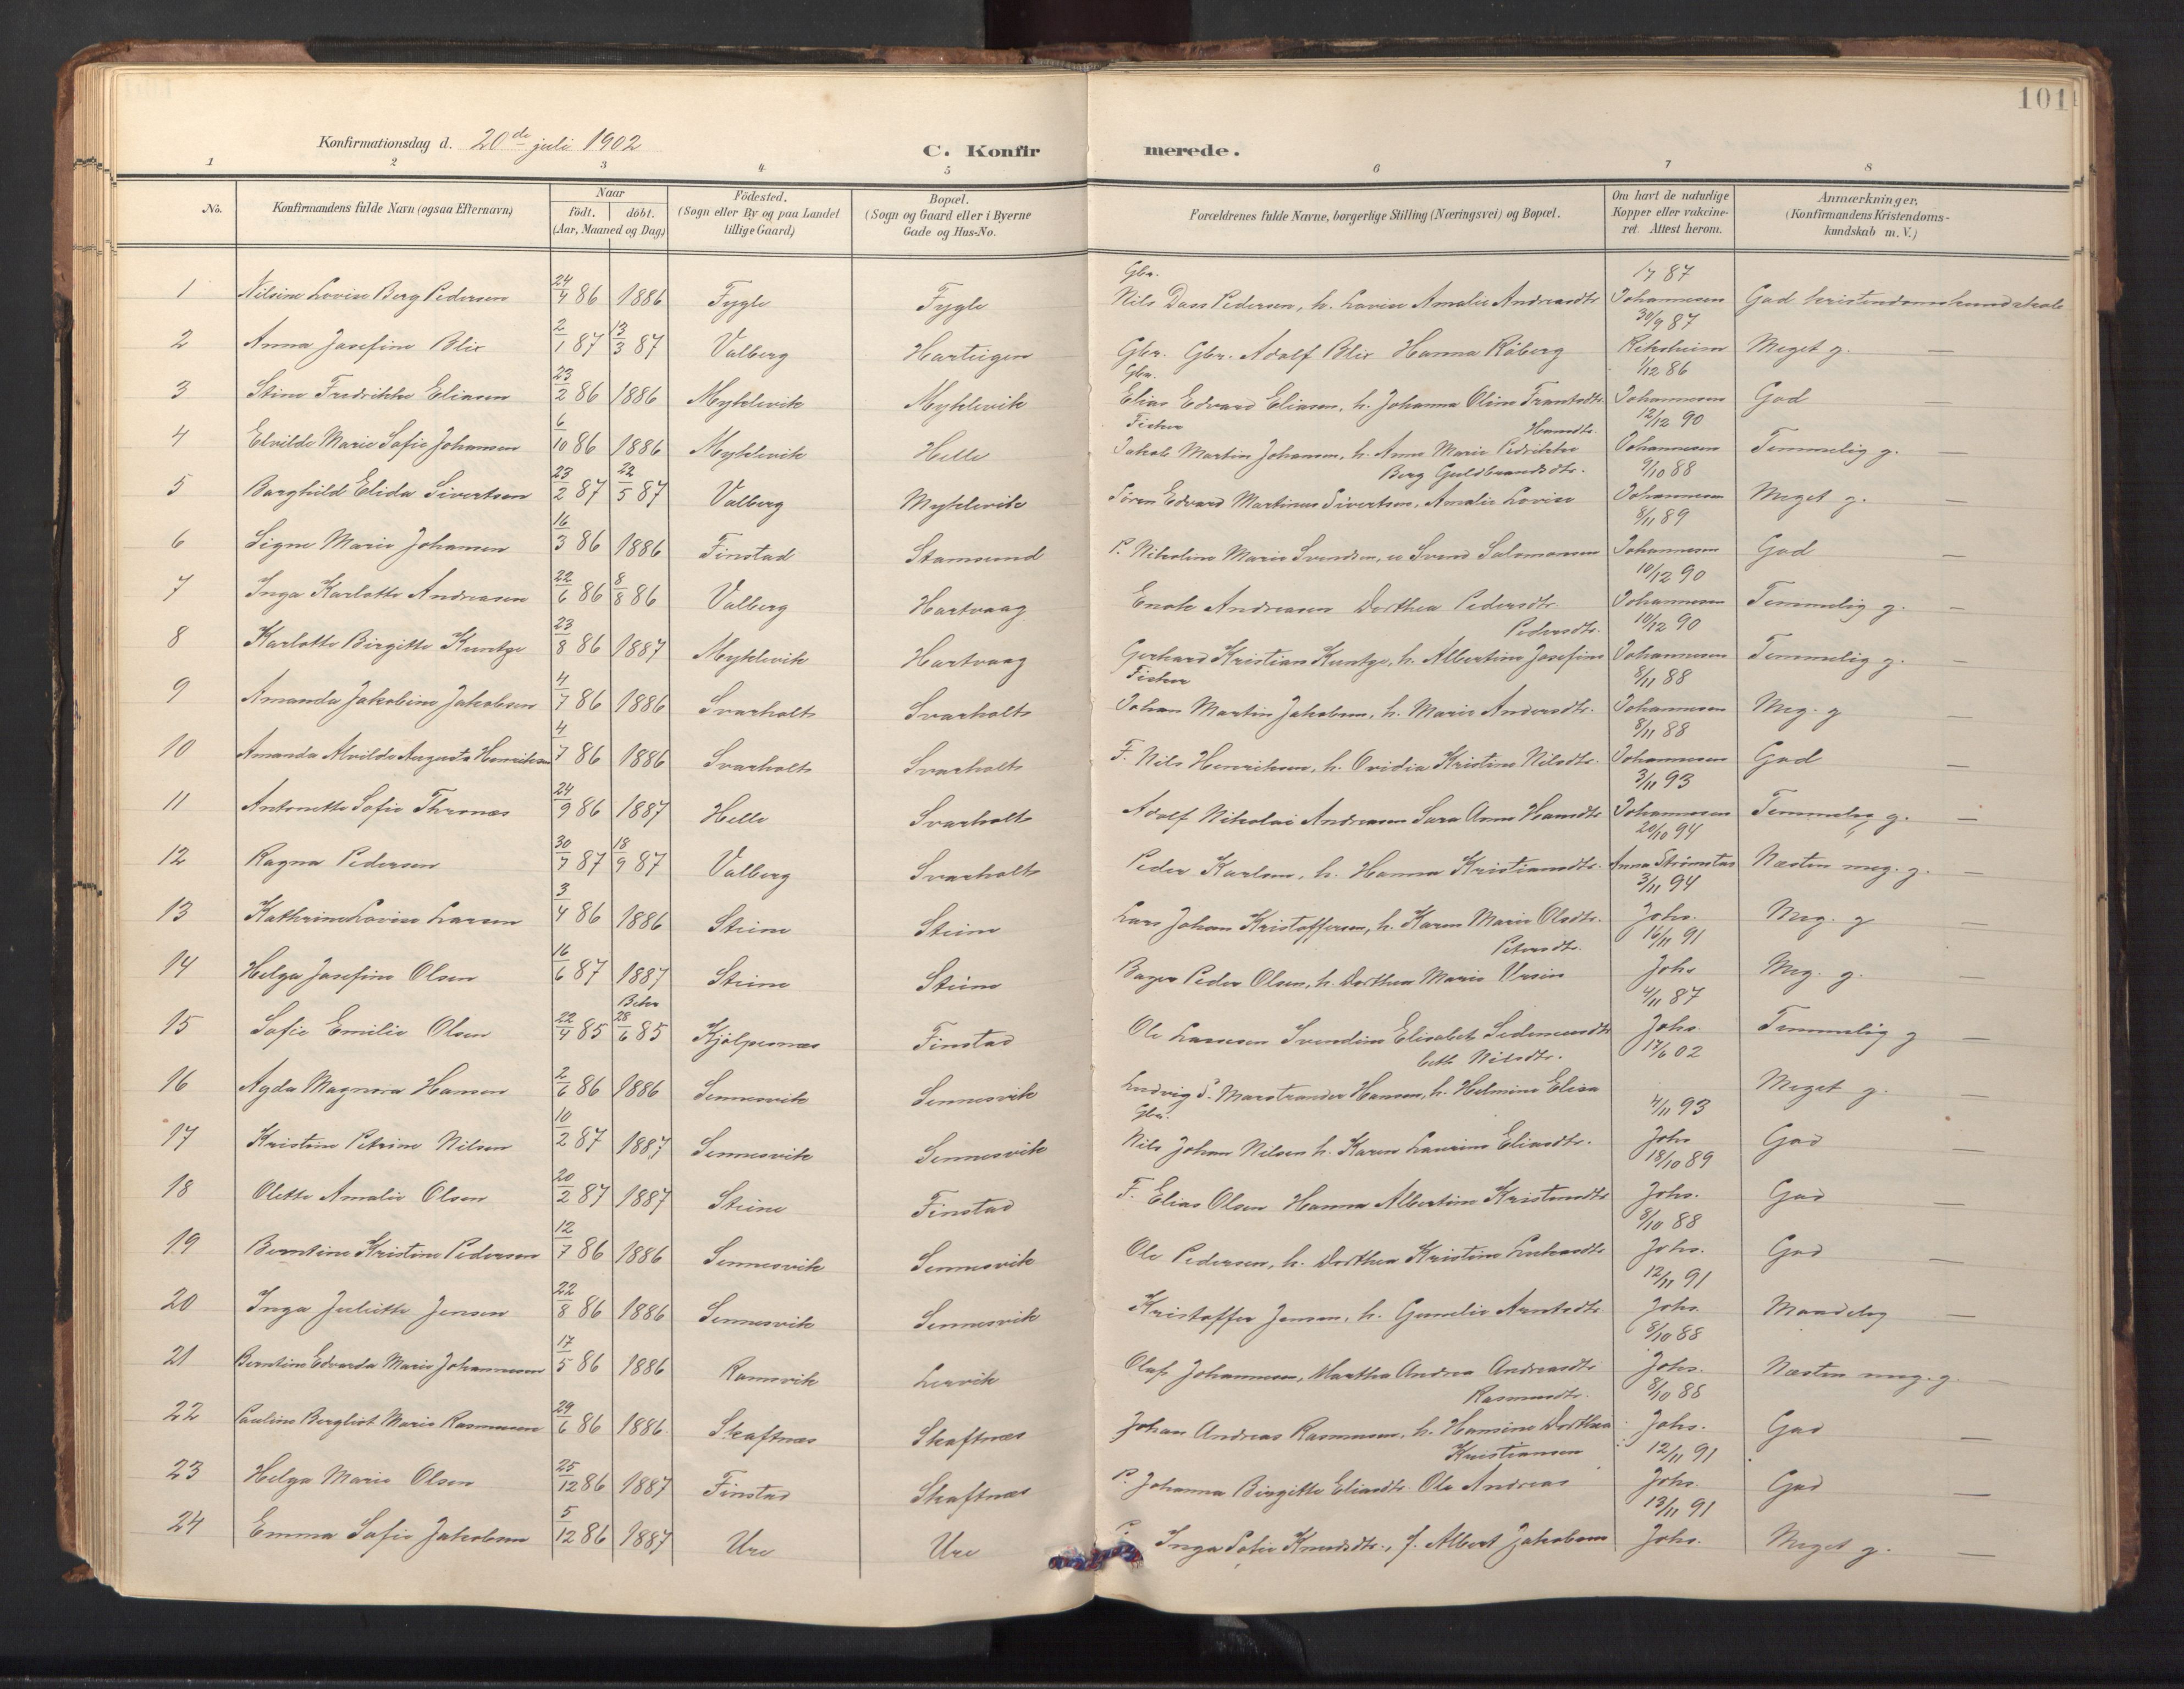 101
Konfirmationsdag d. 20de juli 1902
C. Konfirmerede.
1 2 3 4 5 6 7 8
No. | Konfirmandens fulde Navn (ogsaa Efternavn) | Naar født. | døbt. (Aar, Maaned og Dag) | Födested. (Sogn eller By og paa Landet tillige Gaard) | Bopæl. (Sogn og Gaard eller i Byerne Gade og Hus-No. | Forældrenes fulde Navne, borgerlige Stilling (Næringsvei) og Bopæl. | Om havt de naturlige Kopper eller vakcineret. Attest herom. | Anmærkninger, (Konfirmandens Kristendomskundskab m. V.)
1 Nilsine Lovise Berg Pedersen 24/4 86 1886 Fygle Fygle Gbr. Nils Dass Pedersen, h. Lovise Amalie Andreasdtr 1/7 87 Johannesen God kristendomskundskab
2 Anna Josefine Blix 2/1 87 13/3 87 Valberg Hartvigen Gbr. Gbr. Adolf Blix Hanna Råberg 30/9 87 Meget g. —
3 Stine Fredrikke Eliasen 23/2 86 1886 Myklevik Myklevik Gbr. Elias Edvard Eliasen, h. Johanna Oline Frantsdtr 1/12 86 Johannesen God —
4 Elvilde Marie Sofie Johansen 6/10 86 1886 Myklevik Helle Fisker Jakob Martin Johansen, h. Anna Marie Fredrikke Hansdtr. 12/12 90 Johannesen Temmelig g. —
5 Borghild Elida Sivertsen 23/2 87 22/5 87 Valberg Myklevik Sören Edvard Martinus Sivertsen, Amalie Lovise Berg Guldbrandsdtr. 9/10 88 Johannesen Meget g. —
6 Signe Marie Johansen 16/3 86 1886 Finstad Stamsund P. Nikoline Marie Svendsen, u Svend Salomonsen 8/11 89 Johannesen God —
7 Inga Karlotte Andreasen 22/6 86 8/8 86 Valberg Hartvaag Enok Andreasen Dorthea Pedersdtr 10/12 90 Johannesen Temmelig g. —
8 Karlotte Birgitte Kuntze 23/8 86 1887 Myklevik Hartvaag Gerhard Kristian Kuntze, h. Albertine Josefine Pedersdtr. 10/12 90 Johannesen Temmelig g. —
9 Amanda Jakobine Jakobsen 4/7 86 1886 Svarholt Svarholt Fisker Johan Martin Jakobsen, h. Marie Andersdtr. 8/11 88 Johannesen Meg. g —
10 Amanda Alvilde Augusta Henriksen 4/7 86 1886 Svarholt Svarholt F. Nils Henriksen, h. Ovidia Kristine Nilsdtr. 8/11 88 Johannesen God —
11 Antonette Sofie Thronæs 24/9 86 1887 Helle Svarholt Adolf Nikolai Andreasen Sara Anna Hansdtr 3/11 93 Johannesen Temmelig g. —
12 Ragna Pedersen 30/7 87 18/9 87 Valberg Svarholt Peder Karlsen, h. Hanna Kristiansdtr. 20/10 94 Anna Strömstad Næsten meg. g. —
13 Kathrine Lovise Larsen 3/4 86 1886 Steine Steine Lars Johan Kristoffersen, h. Karen Marie Olsdtr. 3/11 94 Johs. Meg. g —
14 Helga Josefine Olsen 16/6 87 1887 Steine Steine Bager Peder Olsen, h. Dorthea Marie Ursin Petersdtr. 16/11 91 Johs Meg. g. —
15 Sofie Emilie Olsen 22/4 85 28/6 85 Finstad Ole Svendine Elisabet 4/11 87 Johs. Temmelig g —
16 Agda Magnora Hansen 2/6 86 1886 Sennesvik Sennesvik Ludvig S. Marstrander Hansen, h. Helmine Elisabeth Nilsdtr. 17/6 02 Meget g. —
17 Kristine Petrine Nilsen 10/2 87 1887 Sennesvik Sennesvik Gbr. Nils Johan Nilsen h. Karen Laurine Eliasdtr. 4/11 93 Johs God —
18 Olette Amalie Olsen 20/2 87 1887 Steine Finstad F. Elias Olsen Hanna Albertine Kristensdtr 18/10 89 Johs. God —
19 Berntine Kristine Pedersen 12/7 86 1886 Sennesvik Sennesvik Ole Pedersen, h. Dorthea Kristine 8/10 88 Johs. God —
20 Inga Juliette Jensen 22/8 86 1886 Sennesvik Sennesvik Kristoffer Jensen, h. Gunelie Arntsdtr 12/11 91 Johs. Maadelig —
21 Berntine Edvarda Marie Johannesen 17/5 86 1886 Ramsvik Lervik Olaf Johannesen, Martha Andrea Andreasdtr 8/10 88 Johs. Næsten meg. g. —
22 Pauline Bergliot Marie Rasmussen 29/6 86 1886 Skaftnæs Skaftnæs Johan Andreas Rasmussen, h. Hansine Dorthea Rasmusdtr. 8/10 88 Johs. God —
23 Helga Marie Olsen 25/12 86 1887 Finstad Skaftnæs P. Johanna Birgitte Eliasdtr. Ole Andreas Kristiansen 12/11 91 Johs. God —
24 Emma Sofie Jakobsen 5/12 86 1887 Ure Ure P. Inga Sofie Knudsdtr., f. Albert Jakobsen 13/11 91 Johs. Meget g. —